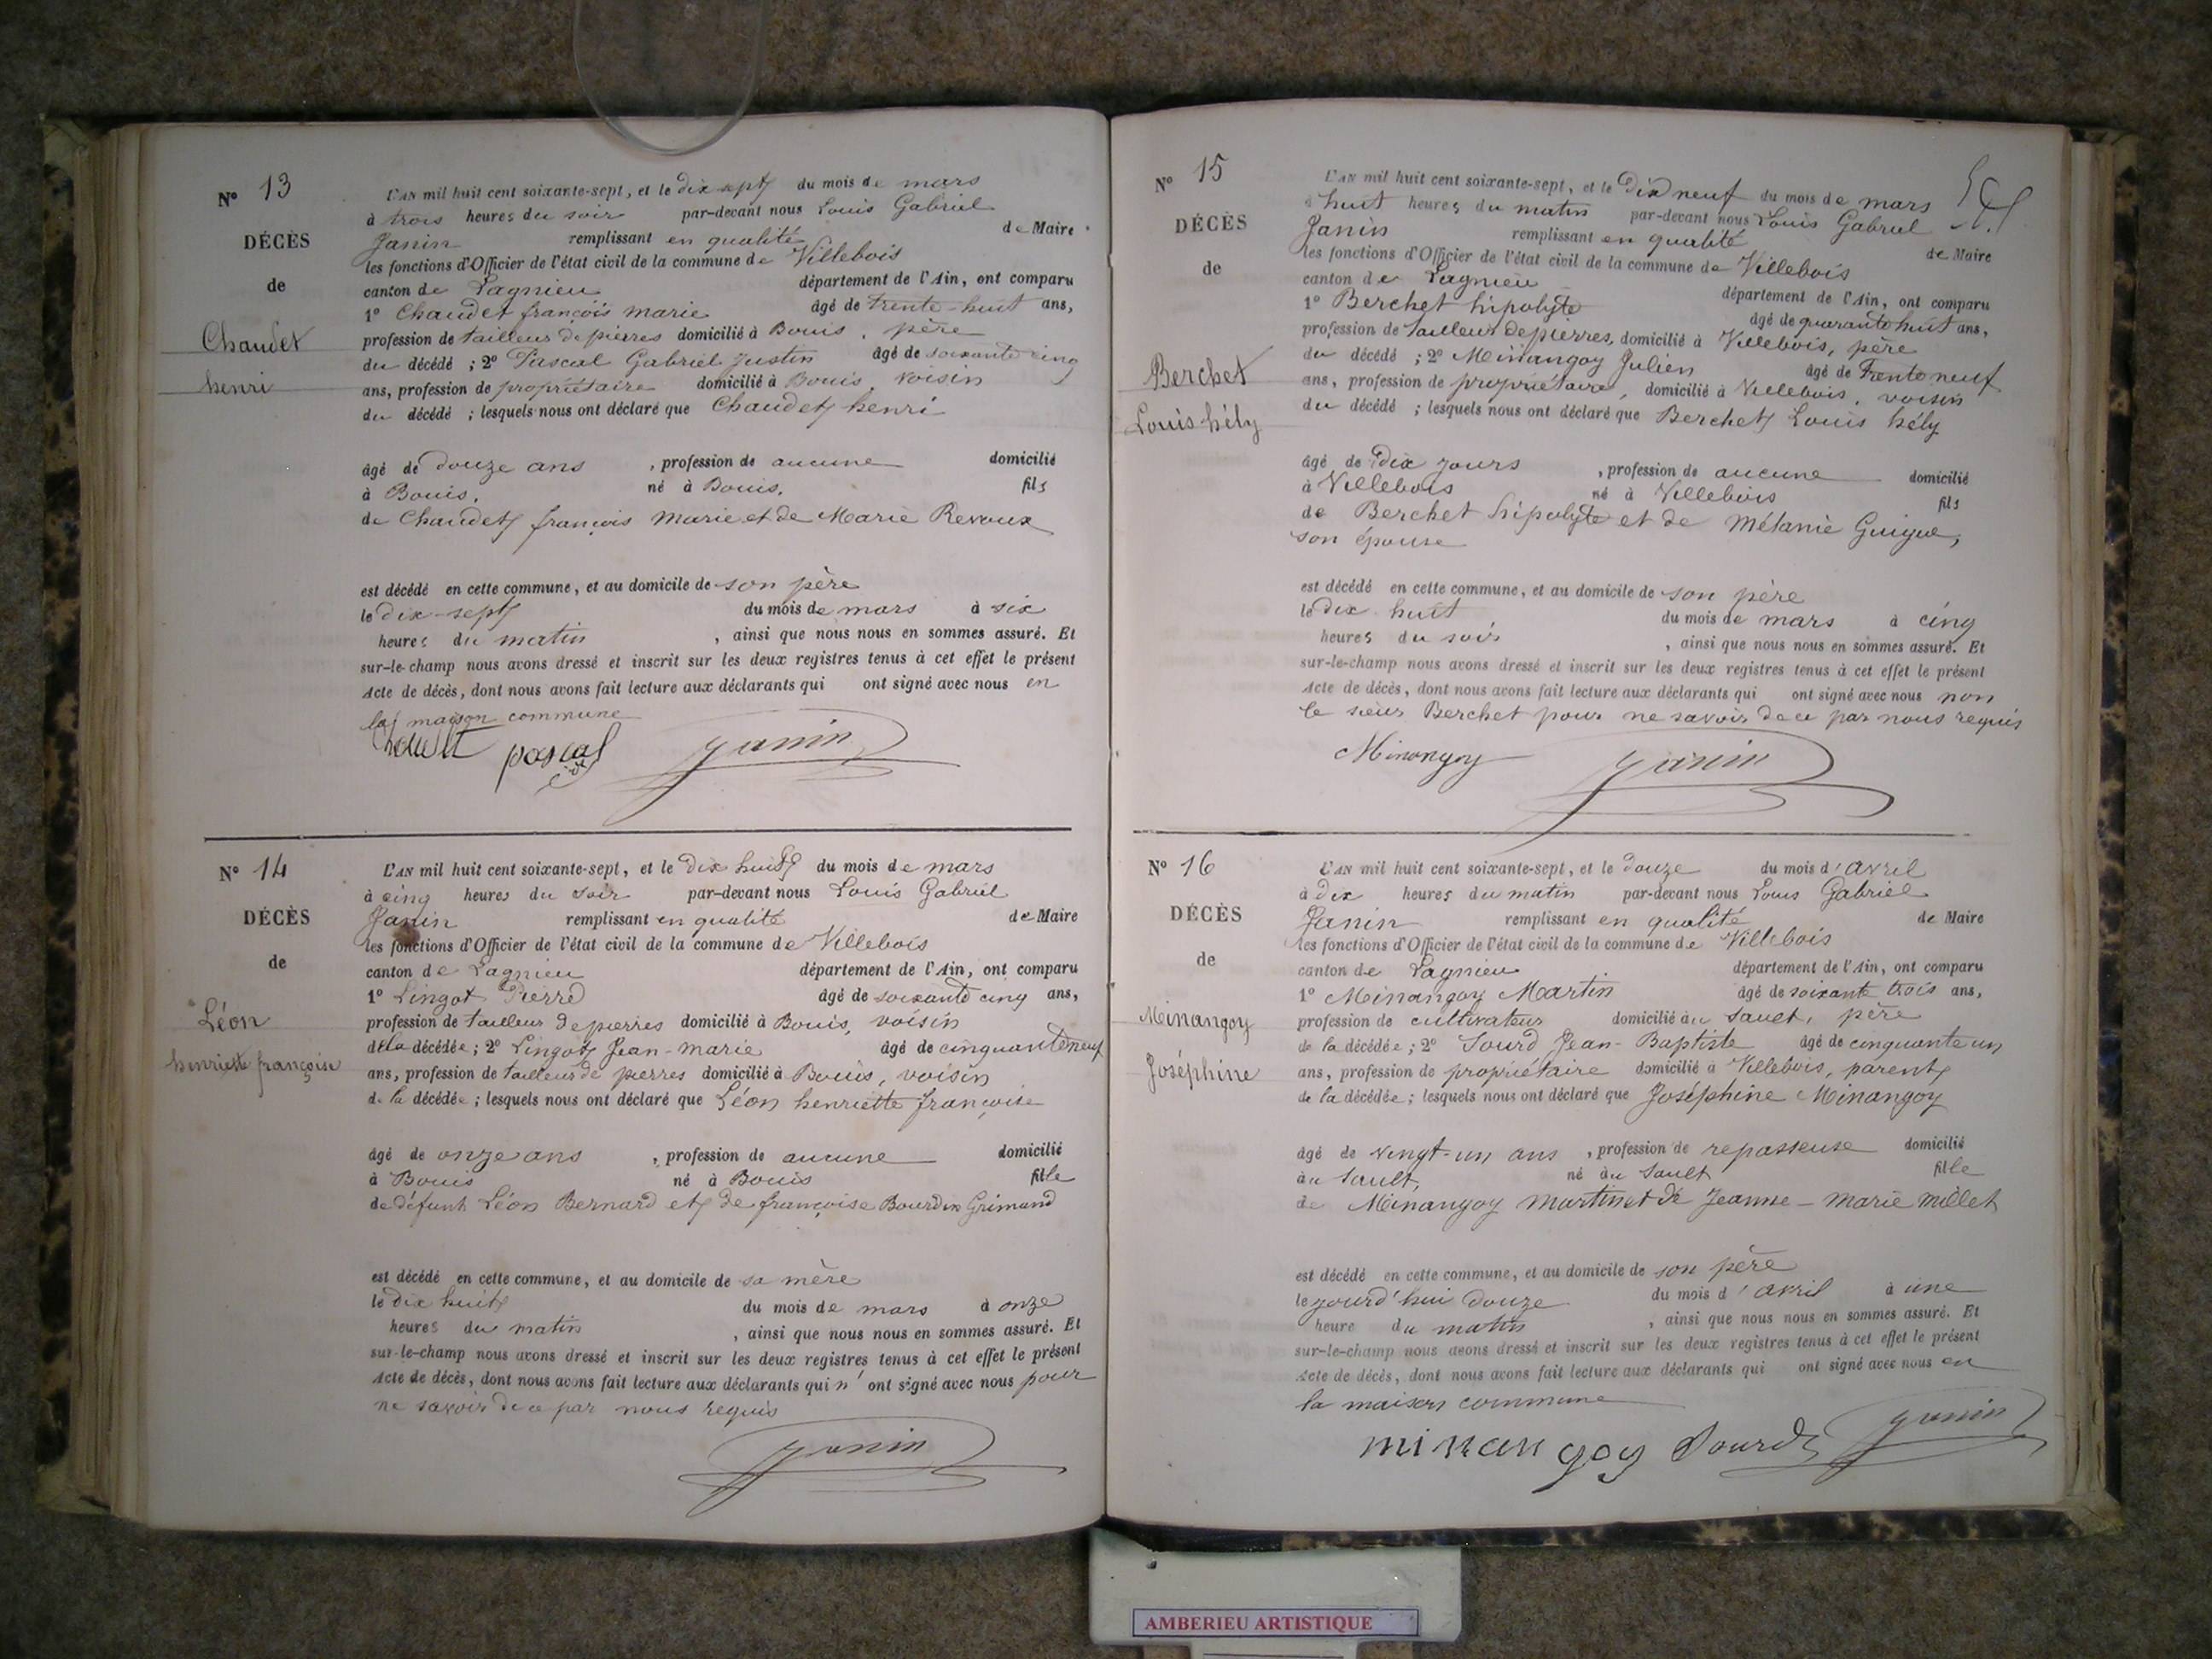 N° 13
DÉCÈS
de
Chaudet
henri
L'AN mil huit cent soixante-sept, et le dix sept du mois de mars
à trois heures du soir par-devant nous Louis Gabriel
Janin remplissant en qualité de Maire
les fonctions d'Officier de l'état civil de la commune de Villebois
canton de Lagnieu département de l'Ain, ont comparu
1° Chaudet françois marie âgé de trente-huit ans,
profession de tailleur de pierres domicilié à Bouis, père
du décédé ; 2° Pascal Gabriel Justin âgé de soixante cinq
ans, profession de propriétaire domicilié à Bouis, voisin
du décédé ; lesquels nous ont déclaré que Chaudet henri
âgé de douze ans , profession de aucune domicilié
à Bouis, né à Bouis, fils
de Chaudet françois Marie et de Marie Revoux
est décédé en cette commune, et au domicile de son père
le dix-sept du mois de mars à six
heures du matin , ainsi que nous nous en sommes assuré. Et
sur-le-champ nous avons dressé et inscrit sur les deux registres tenus à cet effet le présent
Acte de décès, dont nous avons fait lecture aux déclarants qui ont signé avec nous en
la maison commune
pascal Janin
N° 14
DÉCÈS
de
Léon
henriette françoise
L'AN mil huit cent soixante-sept, et le dix huit du mois de mars
à cinq heures du soir par-devant nous Louis Gabriel
Janin remplissant en qualité de Maire
les fonctions d'Officier de l'état civil de la commune de Villebois
canton de Lagnieu département de l'Ain, ont comparu
1° Lingot Pierre âgé de soixante cinq ans,
profession de tailleur de pierres domicilié à Bouis, voisin
de la décédée ; 2° Lingot Jean-marie âgé de cinquante neuf
ans, profession de tailleur de pierres domicilié à Bouis, voisin
de la décédée ; lesquels nous ont déclaré que Léon henriette françoise
âgé de onze ans , profession de aucune domicilié
à Bouis né à Bouis fille
de défunt Léon Bernard et de françoise Bourdin Grimaud
est décédé en cette commune, et au domicile de sa mère
le dix huit du mois de mars à onze
heures du matin , ainsi que nous nous en sommes assuré. Et
sur-le-champ nous avons dressé et inscrit sur les deux registres tenus à cet effet le présent
Acte de décès, dont nous avons fait lecture aux déclarants qui n'ont signé avec nous pour
ne savoir de ce par nous requis
Janin
N° 15
DÉCÈS
de
Berchet
Louis hély
L'AN mil huit cent soixante-sept, et le Dix neuf du mois de mars
à huit heures du matin par-devant nous Louis Gabriel
Janin remplissant en qualité de Maire
les fonctions d'Officier de l'état civil de la commune de Villebois
canton de Lagnieu département de l'Ain, ont comparu
1° Berchet hipolyte âgé de quarante huit ans,
profession de tailleur de pierres, domicilié à Villebois, père
du décédé ; 2° Minangoy Julien âgé de Trente neuf
ans, profession de propriétaire, domicilié à Villebois, voisin
du décédé ; lesquels nous ont déclaré que Berchet Louis hély
âgé de dix jours , profession de aucune domicilié
à Villebois né à Villebois fils
de Berchet hipolyte et de Mélanie Guigue,
son épouse
est décédé en cette commune, et au domicile de son père
le dix huit du mois de mars à cinq
heures du soir , ainsi que nous nous en sommes assuré. Et
sur-le-champ nous avons dressé et inscrit sur les deux registres tenus à cet effet le présent
Acte de décès, dont nous avons fait lecture aux déclarants qui ont signé avec nous non
le sieur Berchet pour ne savoir de ce par nous requis
Minangoy Janin
N° 16
DÉCÈS
de
Minangoy
Joséphine
L'AN mil huit cent soixante-sept, et le douze du mois d'avril
à dix heures du matin par-devant nous Louis Gabriel
Janin remplissant en qualité de Maire
les fonctions d'Officier de l'état civil de la commune de Villebois
canton de Lagnieu département de l'Ain, ont comparu
1° Minangoy Martin âgé de soixante trois ans,
profession de cultivateur domicilié au Sault, père
de la décédée ; 2° Sourd Jean-Baptiste âgé de cinquante un
ans, profession de propriétaire domicilié à Villebois, parent
de la décédée ; lesquels nous ont déclaré que Joséphine Minangoy
âgé de vingt-un ans , profession de repasseuse domicilié
au Sault, né au Sault fille
de Minangoy Martin et de Jeanne-marie millet
est décédé en cette commune, et au domicile de son père
le jourd'hui douze du mois d'avril à une
heure du matin , ainsi que nous nous en sommes assuré. Et
sur-le-champ nous avons dressé et inscrit sur les deux registres tenus à cet effet le présent
Acte de décès, dont nous avons fait lecture aux déclarants qui ont signé avec nous en
la maison commune
minangoy Sourd Janin
AMBERIEU ARTISTIQUE